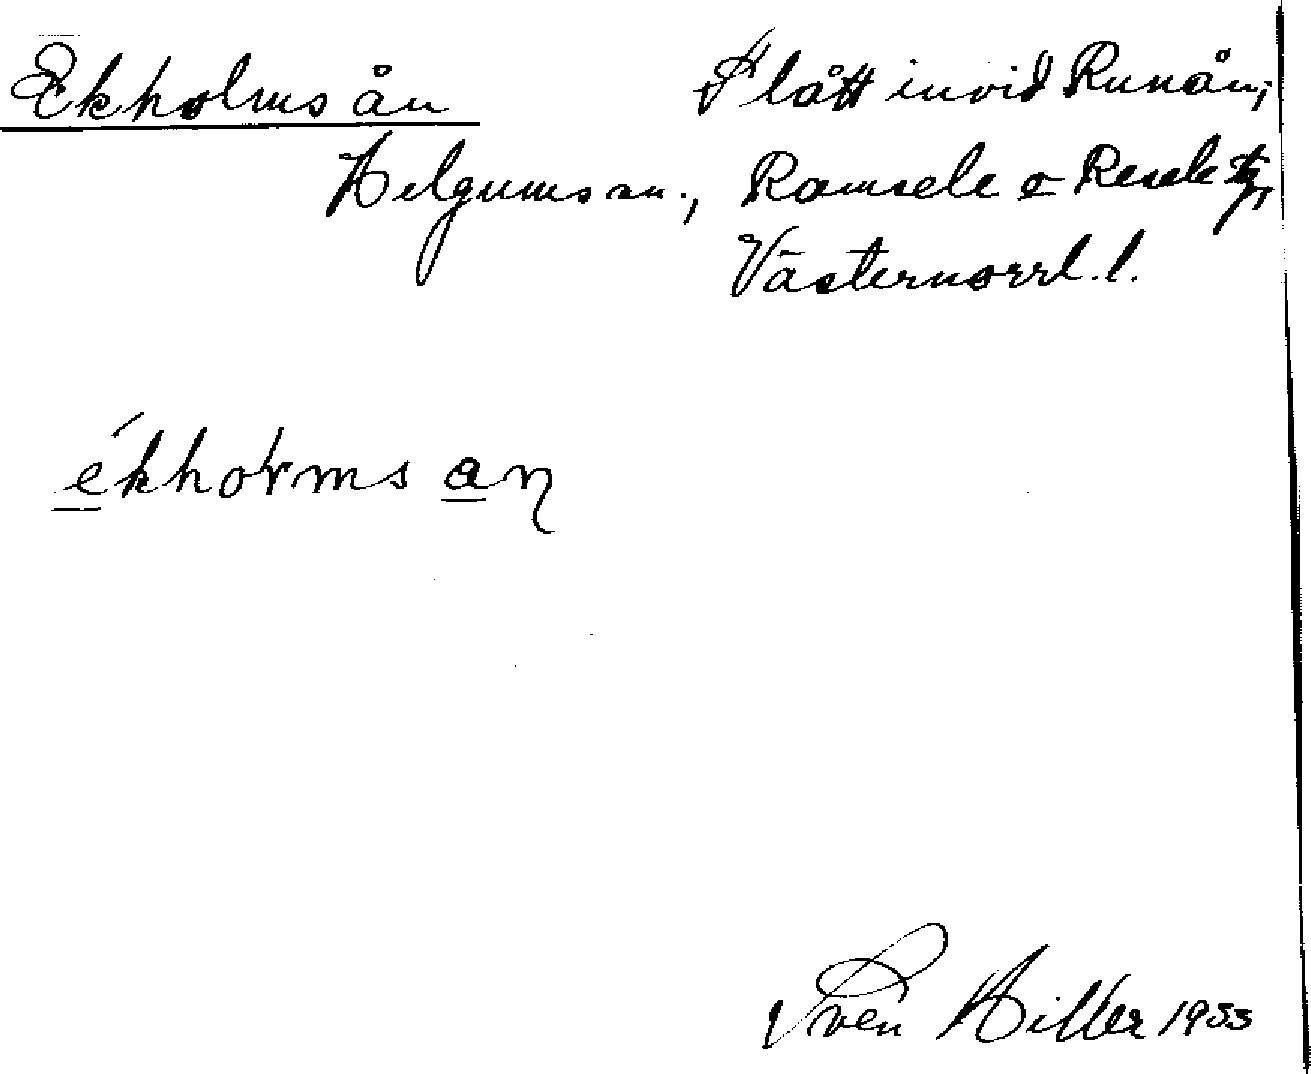 Ekholms ån Slått invid Runån,
Helgums sn., Ramsele o Resele tg,
Västernorrl. l.
ékholms an
Sven Hiller 1933